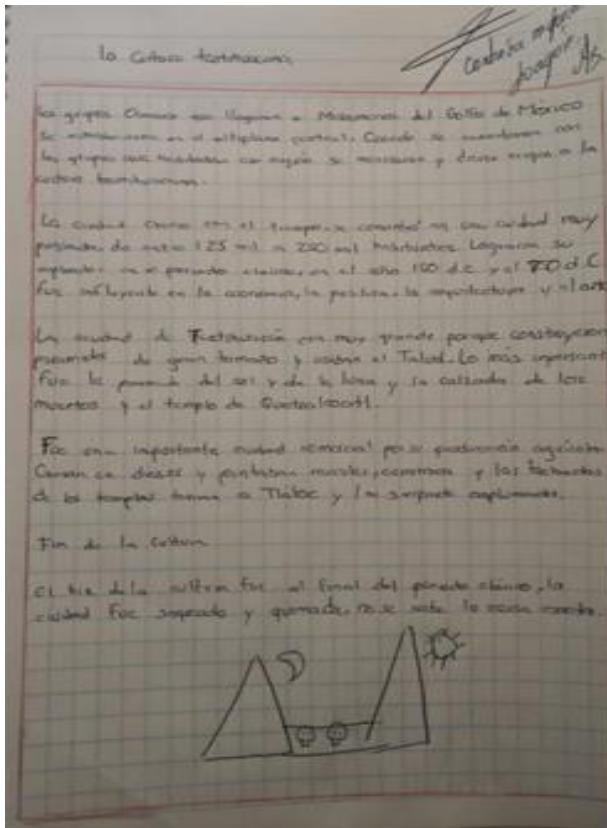 La Cultura teotihuacana
Los grupos Olmecas que llegaron a Mesoamerica del Golfo de México
se establecieron en el altiplano central. Cuando se mezclaron con
los grupos que habitaban esa región se mezclaron y dieron origen a la
cultura teotihuacana.
La ciudad creció con el tiempo, se convirtió en una ciudad muy
poblada de entre 125 mil a 250 mil habitantes. Lograron su
esplendor en el periodo clásico, en el año 150 d.C y el 700 d.C
Fue influyente en la economia, la politica, la arquitectura y el arte
La ciudad de Teotihuacán era muy grande porque construyeron
piramides de gran tamaño y usaban el Talud. Lo mas important
fue la piramide del sol y de la luna y la calzada de los
muertos y el templo de Quetzalcoatl.
Fue una importante ciudad comercial por su produccion agricola.
Creian en dioses y pintaban murales, y las fachadas
de los templos tenian a Tláloc y la serpiente emplumada.
Fin de la Cultura
El fin de la cultura fue al final del periodo clásico, la
ciudad fue saqueada y quemada, no se sabe la causa exacta.